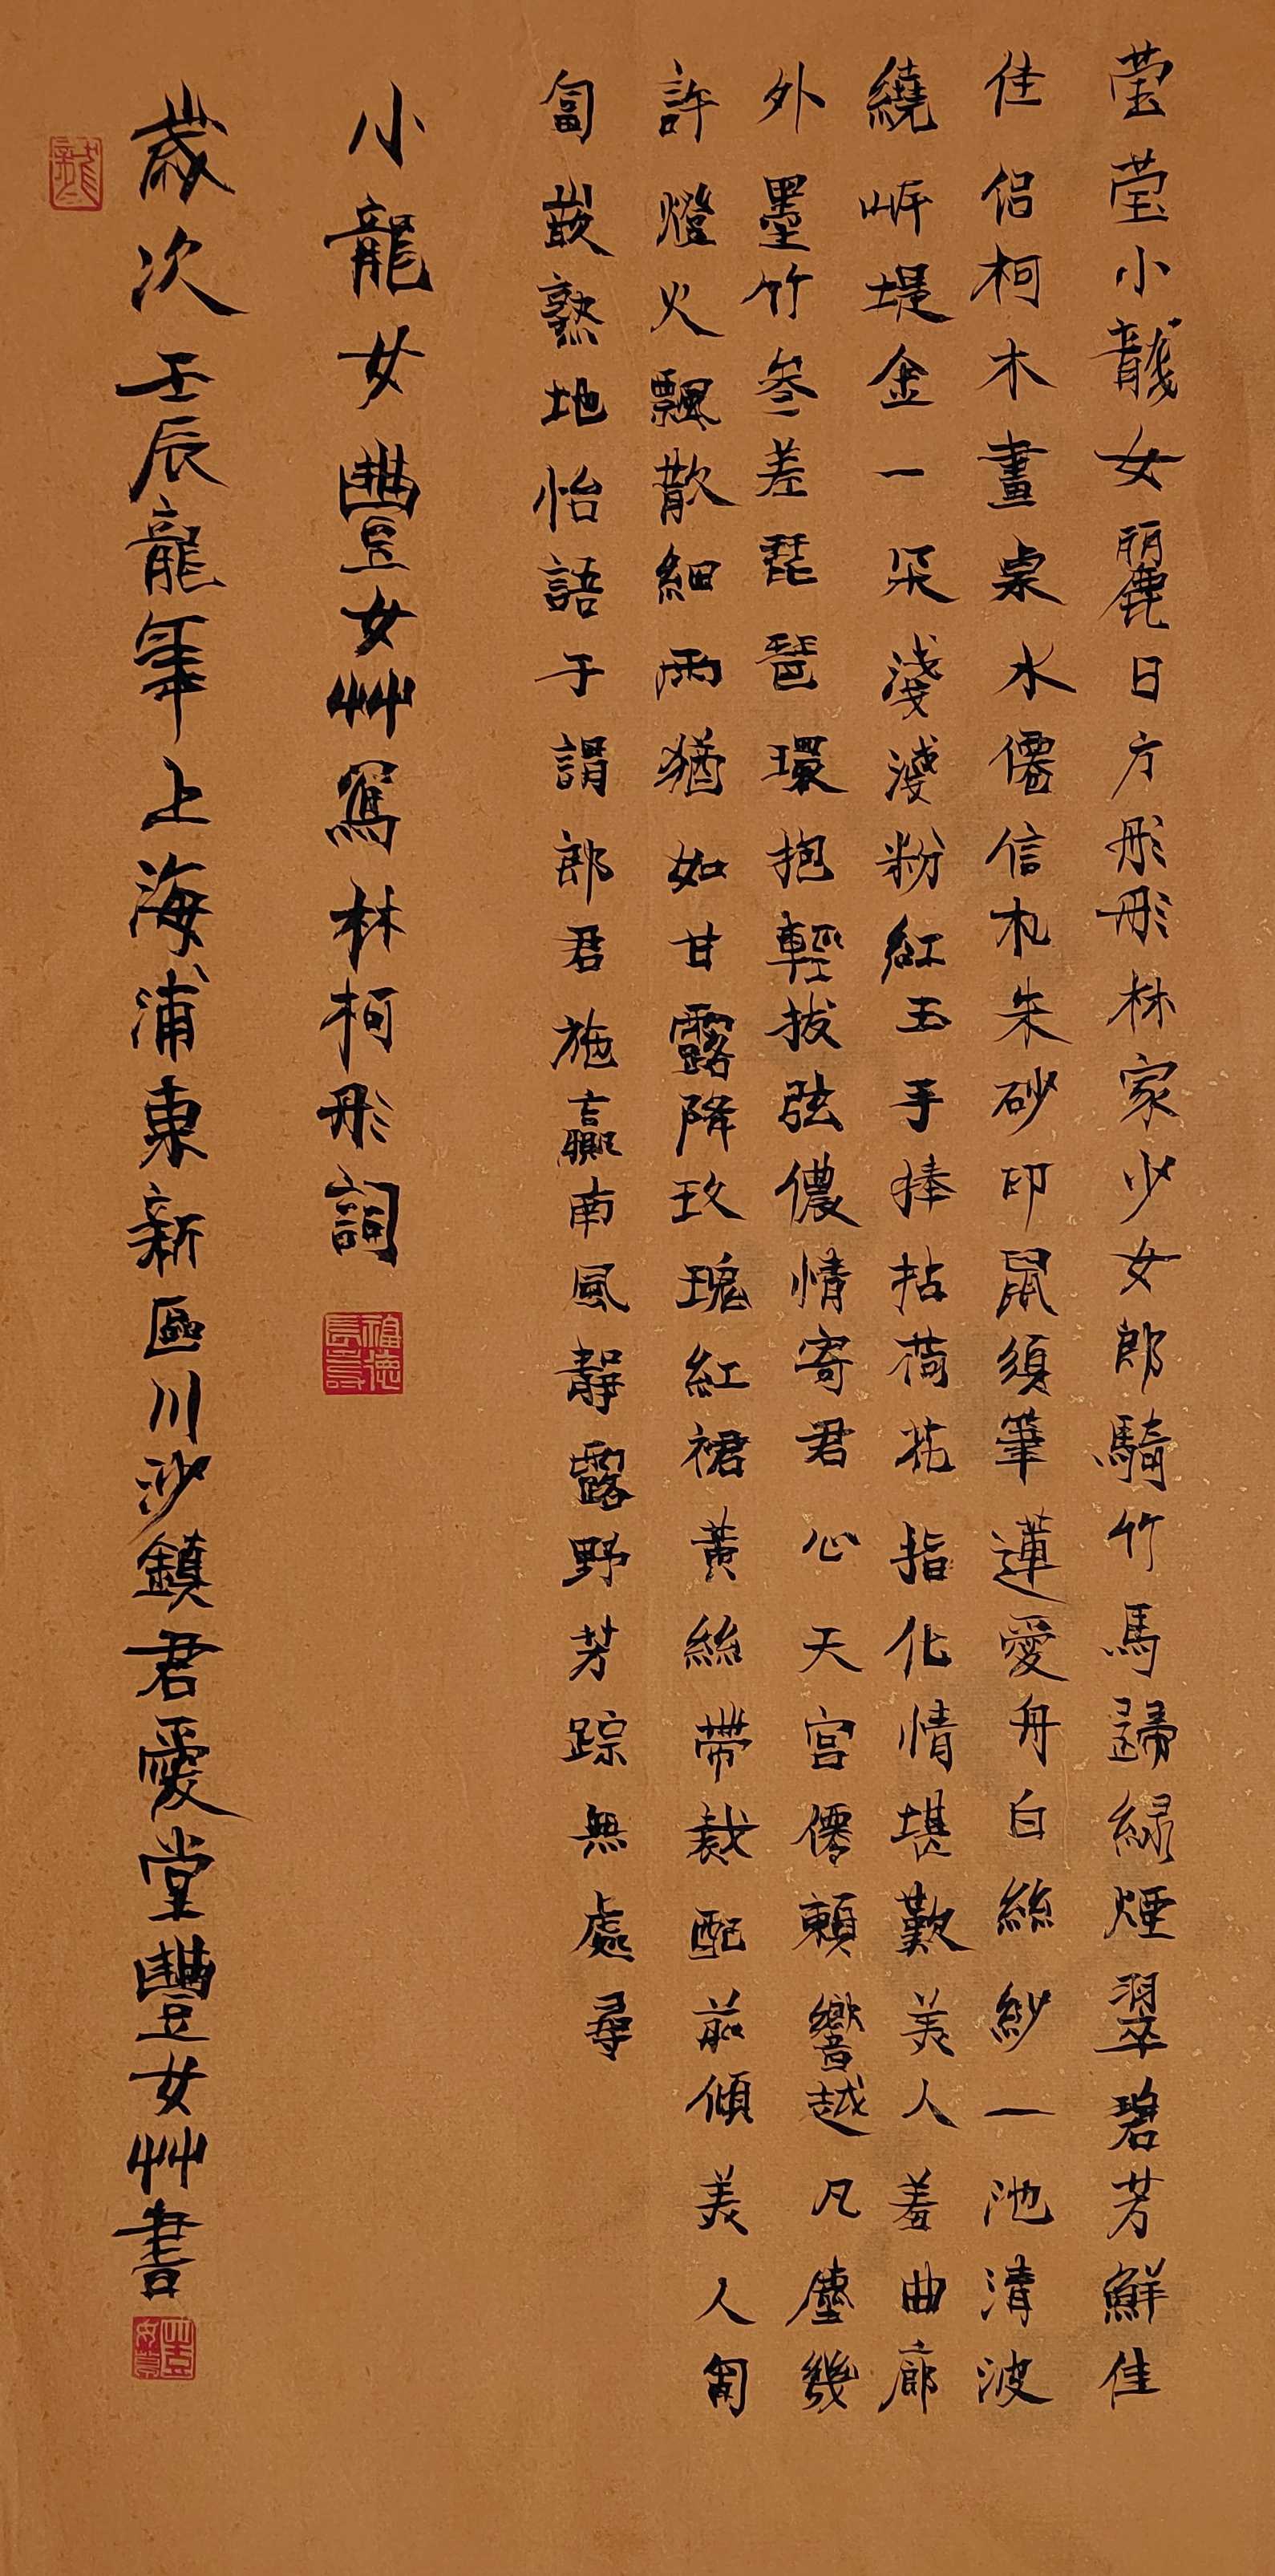 莹莹小龍女麗日方彤彤林家少女郎騎竹馬歸緑煙翠碧芳鮮佳
佳侣柯木畫桌水僊信札朱砂印鼠須筆蓮愛舟白絲紗一池清波
繞岸堤金一朵淺淺粉紅玉手捧拈荷花指化情堪歎美人羞曲廊
外墨竹叁差琵琶環抱輕拔弦儂情寄君心天宫僊籟響越凡塵幾
許燈火飄散細雨猶如甘露降玫瑰紅裙黃絲帶裁配前傾美人匍
匐嵌熟地怡語于謂郎君施贏南風靜露野芳踪無處尋
小龍女豐女艸寫林柯彤詞
福德長壽
歲次壬辰龍年上海浦東新區川沙鎮君愛堂豐女艸書
龍
豐女艸